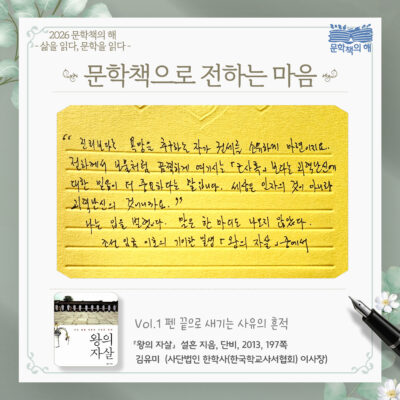 2026 문학책의 해
- 삶을 읽다, 문학을 읽다 -
문학책의 해
문학책으로 전하는 마음
“ 진리보다는 욕망을 추구하는 자가 권세를 소유하게 마련이지요.
전하께서 보물처럼 끔찍하게 여기시는 『 』보다는 괴력난신에
대한 믿음이 더 중요하다는 말입니다. 세상은 인자의 것이 아니라
괴력난신의 것이니까요. ”
나는 입을 벌렸다. 말은 한 마디도 나오지 않았다.
조선 임금 이호의 기이한 열엿 『왕의 자살』 중에서
왕의
자살
Vol.1 펜 끝으로 새기는 사유의 흔적
『왕의 자살』 설흔 지음, 단비, 2013, 197쪽
김유미 (사단법인 한학사(한국학교사서협회) 이사장)